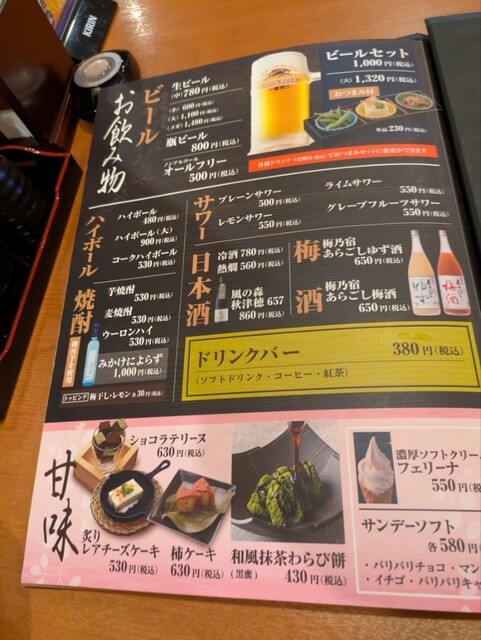 KIRIN
お飲み物
ビール
生ビール
(中)780円(税込)
(小) 600円(税込)
(大) 1,100円(税込)
(メガ) 1,480円(税込)
瓶ビール
800円(税込)
ノンアルコール
オールフリー
500円(税込)
ビールセット
1,000円(税込)
(大) 1,320円(税込)
おつまみ付
単品230円(税込)
各種ドリンク+230円(税込)でおつまみセットに変更ができます
ハイボール
ハイボール
480円(税込)
ハイボール(大)
900円(税込)
コークハイボール
530円(税込)
サワー
プレーンサワー
500円(税込)
レモンサワー
550円(税込)
ライムサワー
550円(税込)
グレープフルーツサワー
550円(税込)
焼酎
芋焼酎
530円(税込)
麦焼酎
530円(税込)
ウーロンハイ
530円(税込)
みかけによらず
1,000円(税込)
トッピング 梅干し・レモン 各30円(税込)
日本酒
冷酒 780円(税込)
熱燗 560円(税込)
風の森
秋津穂 657
860円(税込)
梅酒
梅乃宿
あらごしゆず酒
650円(税込)
梅乃宿
あらごし梅酒
650円(税込)
ゆず
梅酒
ドリンクバー 380円(税込)
(ソフトドリンク・コーヒー・紅茶)
甘味
ショコラテリーヌ
630円(税込)
炙り
レアチーズケーキ
530円(税込)
柿ケーキ
630円(税込)
和風抹茶わらび餅
(黒蜜) 430円(税込)
濃厚ソフトクリーム
フェリーナ
550円(税込)
サンデーソフト
各580円(
・パリパリチョコ・マン
・イチゴ・パリパリキャ